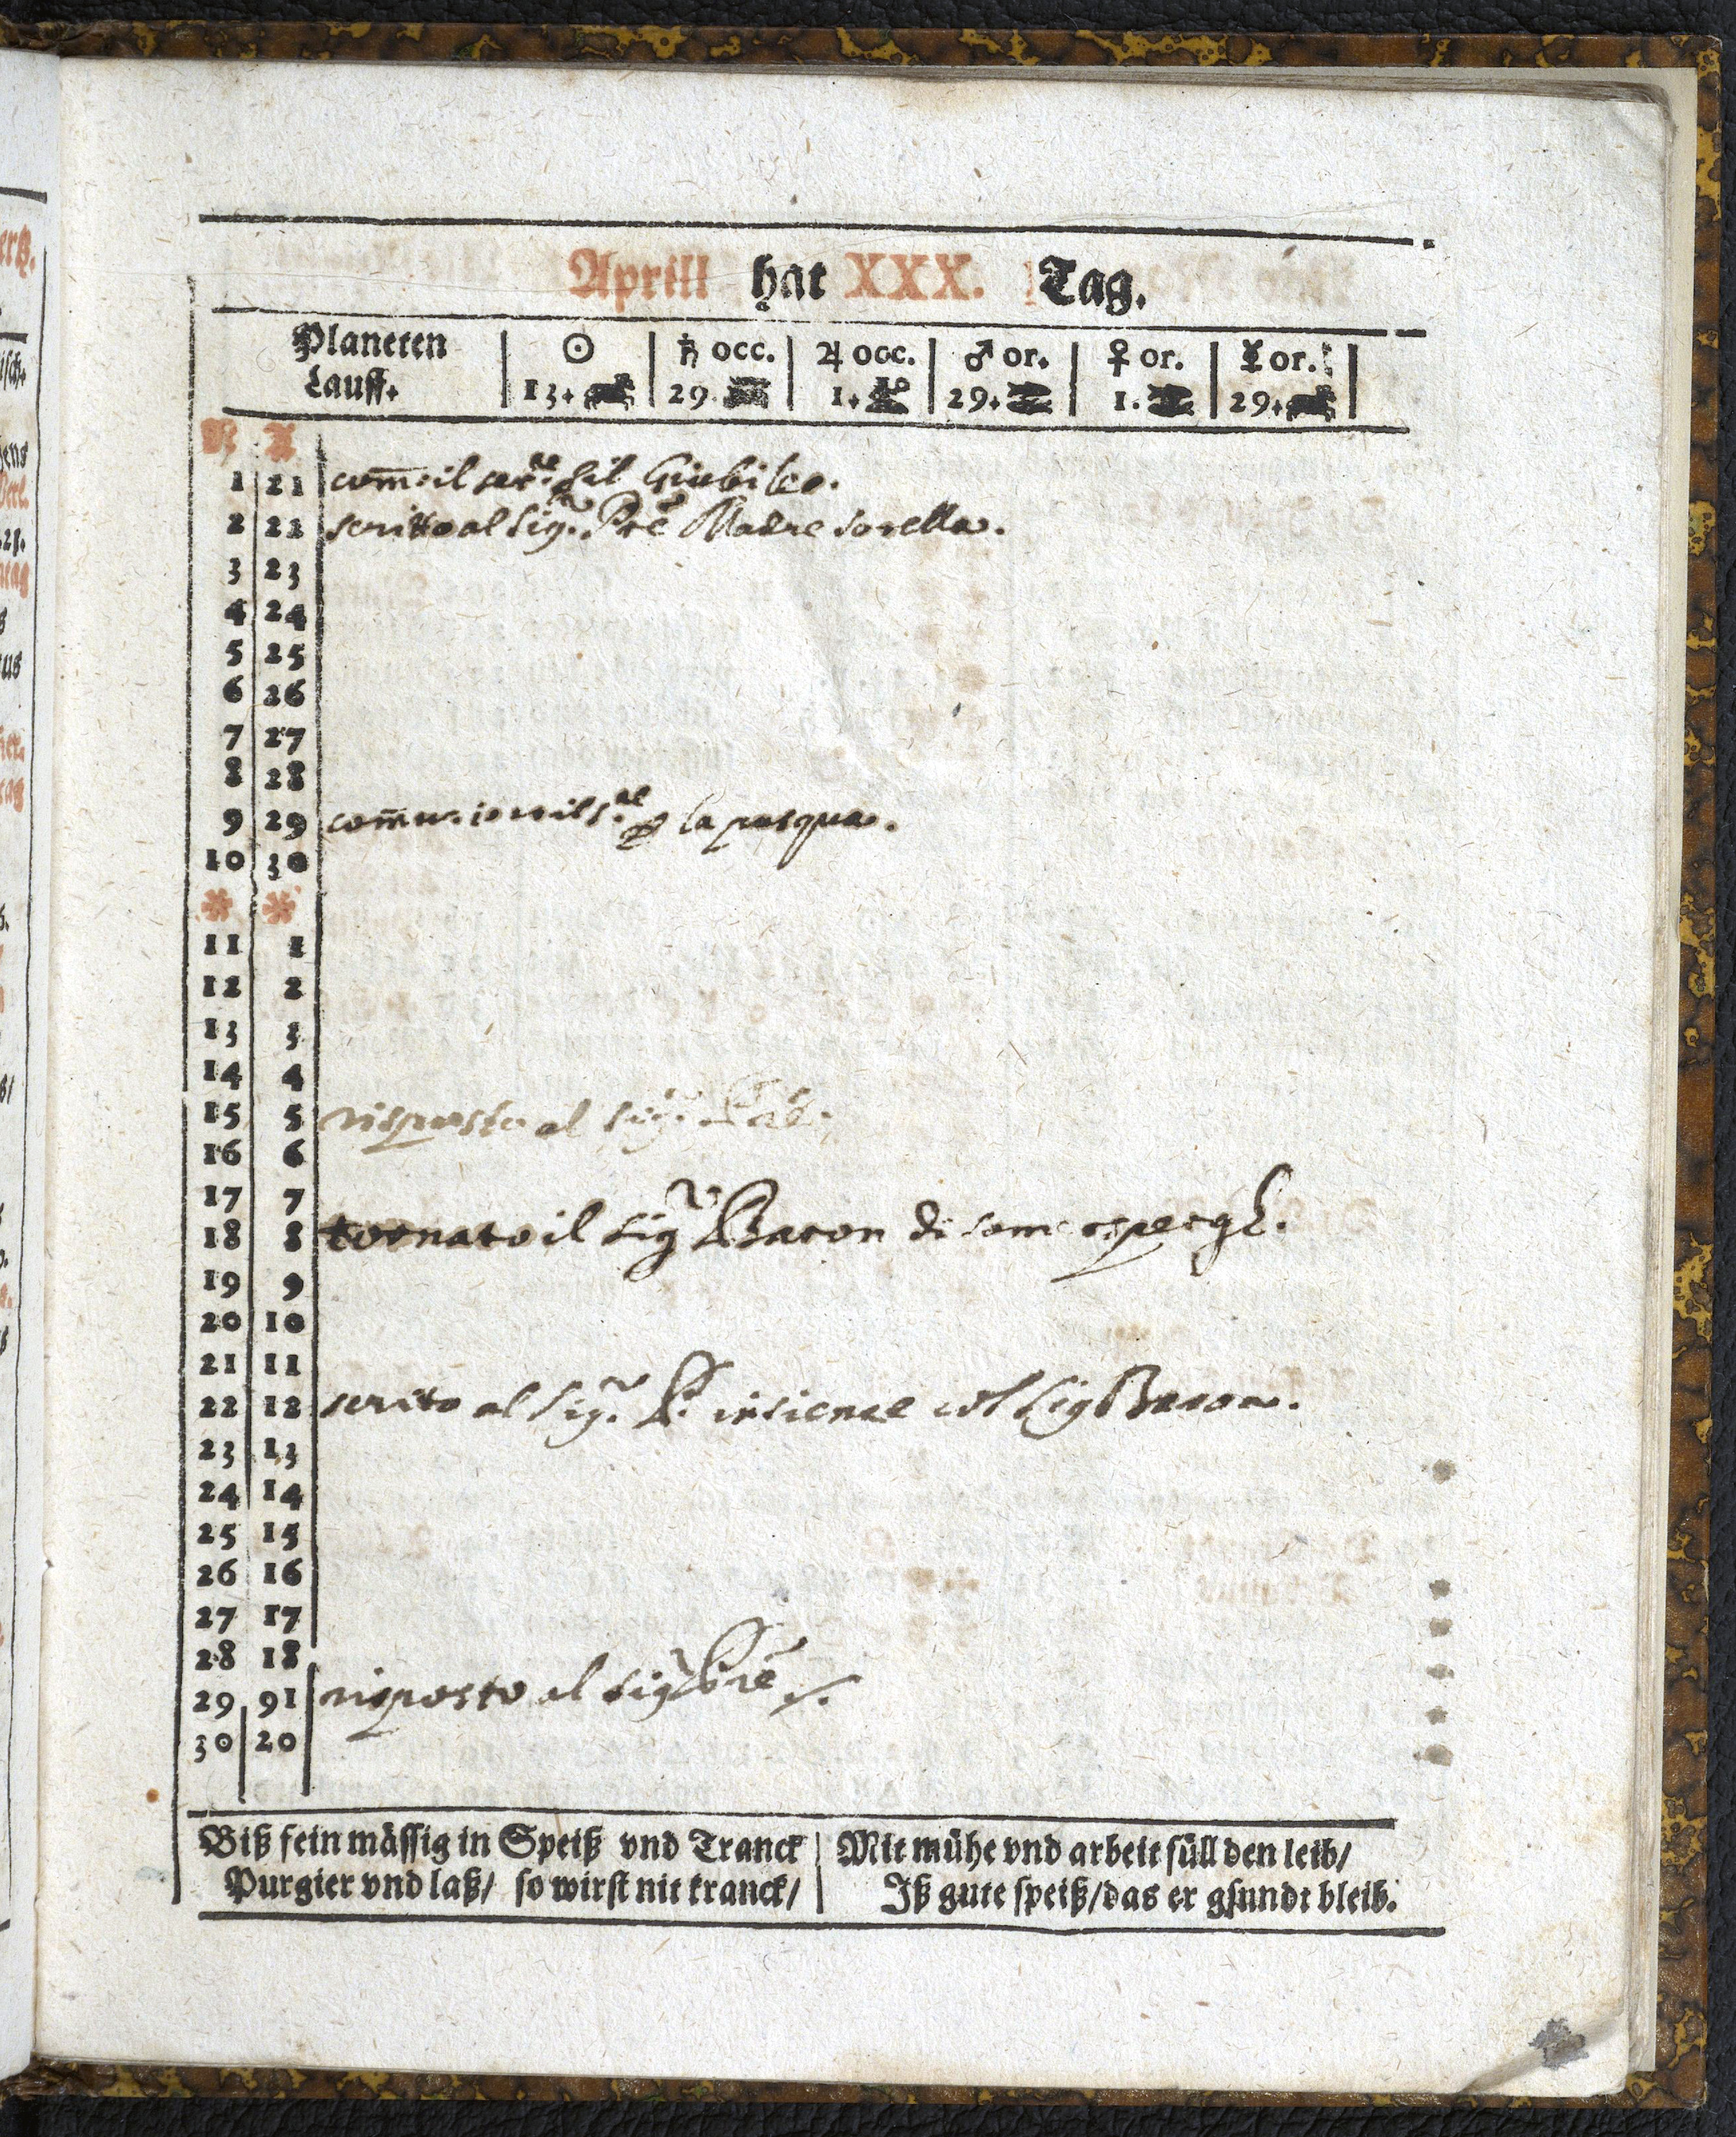 Aprill hat XXX. Tag.
Planeten | ☉ | ♄ occ. | ♃ occ. | ♂ or. | ♀ or. | ☿ or.
Lauff. | 13. | 29. | 1. | 29. | 1. | 29.
N A
1 21 il Giubileo.
2 22 scritto al Sig.r Pre Madre sorella.
3 23
4 24
5 25
6 26
7 27
8 28
9 29 la pasqua.
10 30
* *
11 1
12 2
13 3
14 4
15 5 risposto al Sig.r
16 6
17 7
18 8 tornato il Sig.r Baron di
19 9
20 10
21 11
22 12 scrito al Sig.r P. insieme col Sig Baron.
23 13
24 14
25 15
26 16
27 17
28 18
29 91 risposto al Sig.r Pre
30 20
Biß fein mässig in Speiß vnd Tranck
Purgier vnd laß/ so wirst nit kranck/
Mit mühe vnd arbeit füll den leib/
Jß gute speiß/das er gsundt bleib.